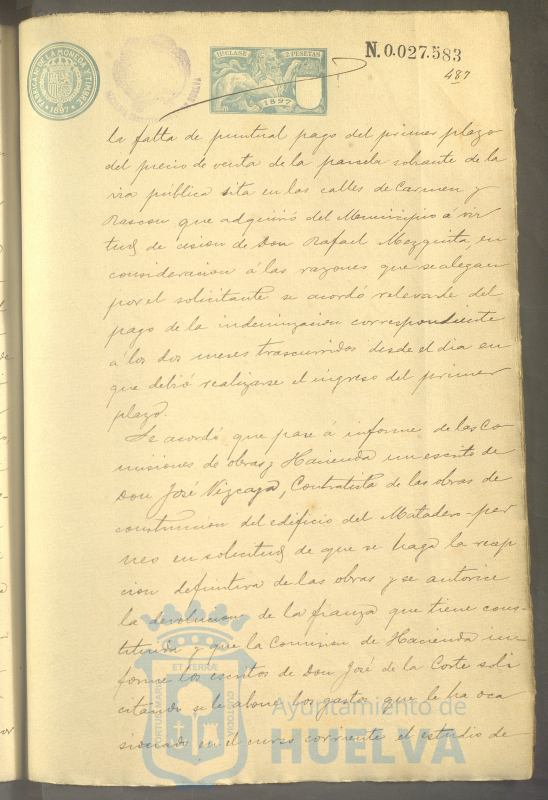 FABRICA NAL DE LA MONEDA Y TIMBRE
1897
11ª CLASE 2 PESETAS
1897
N. 0.027.583
487
la falta de puntual pago del primer plazo
del precio de venta de la parcela sobrante de la
via pública sita en las calles de Carmen y
Rascon que adquirió del Municipio á vir
tud de cision de Don Rafael Mezquita, en
consideracion á las razones que se alegan
por el solicitante se acordó relevarle del
pago de la indemnizacion correspondiente
á los dos meses trascurridos desde el dia en
que debió realizarse el ingreso del primer
plazo.
Se acordó que pase á informe de las Co
misiones de obras y Hacienda un escrito de
Don José Vizcaya, Contratista de las obras de
construccion del edificio del Matadero-per
neo en solicitud de que se haga la recep
cion definitiva de las obras y se autorice
la devolucion de la fianza que tiene cons-
tituida y que la Comision de Hacienda in
forme los escritos de Don José de la Corte soli
citando se le abone los gastos que le ha oca
sionado en el curso corriente el estudio de
ET TERRÆ
PORTUS MARIS
CUSTODIA
Ayuntamiento de
HUELVA